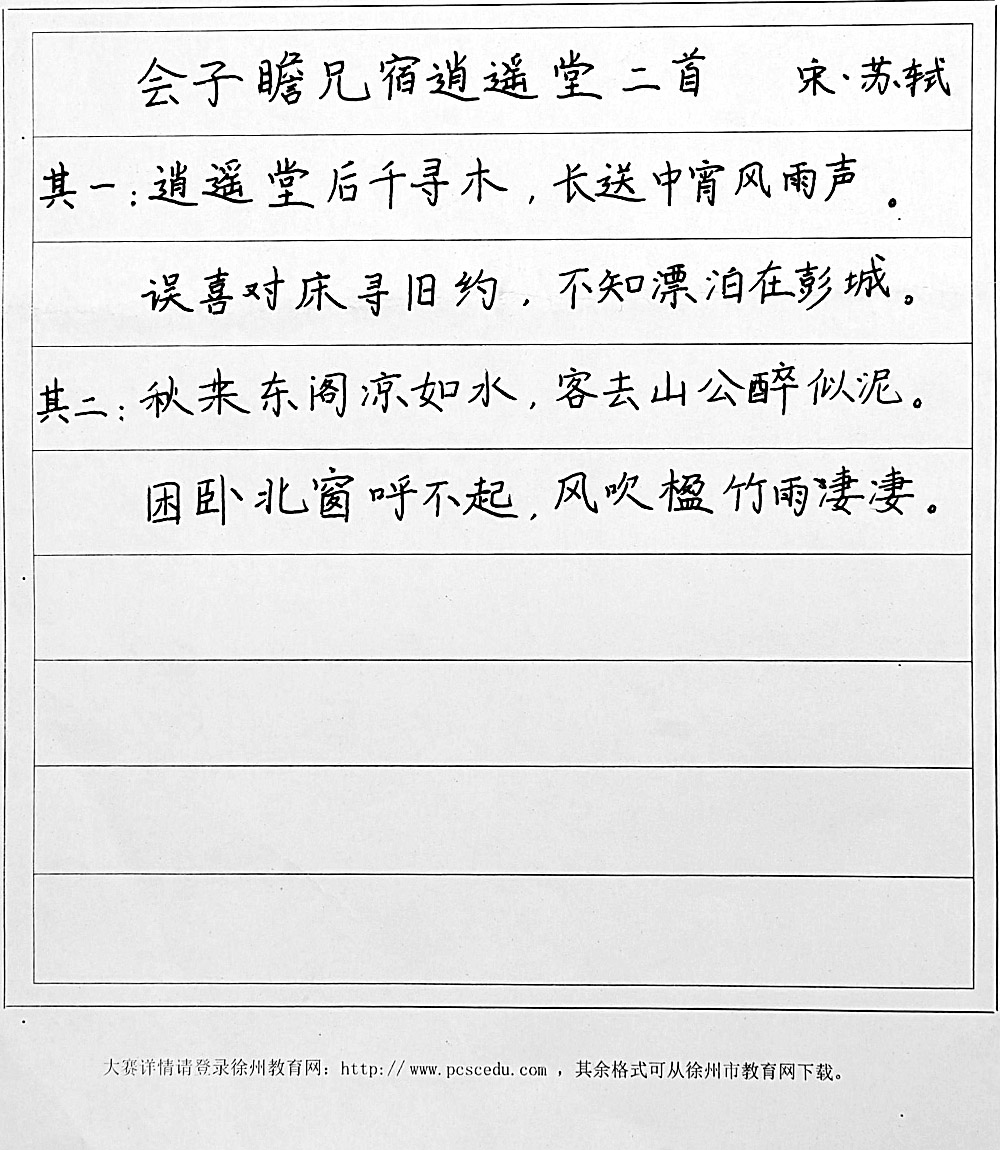 会子瞻兄宿逍遥堂二首 宋·苏轼
其一:逍遥堂后千寻木,长送中宵风雨声。
误喜对床寻旧约,不知漂泊在彭城。
其二:秋来东阁凉如水,客去山公醉似泥。
困卧北窗呼不起,风吹楹竹雨凄凄。
大赛详情请登录徐州教育网:http://www.pcscedu.com,其余格式可从徐州市教育网下载。